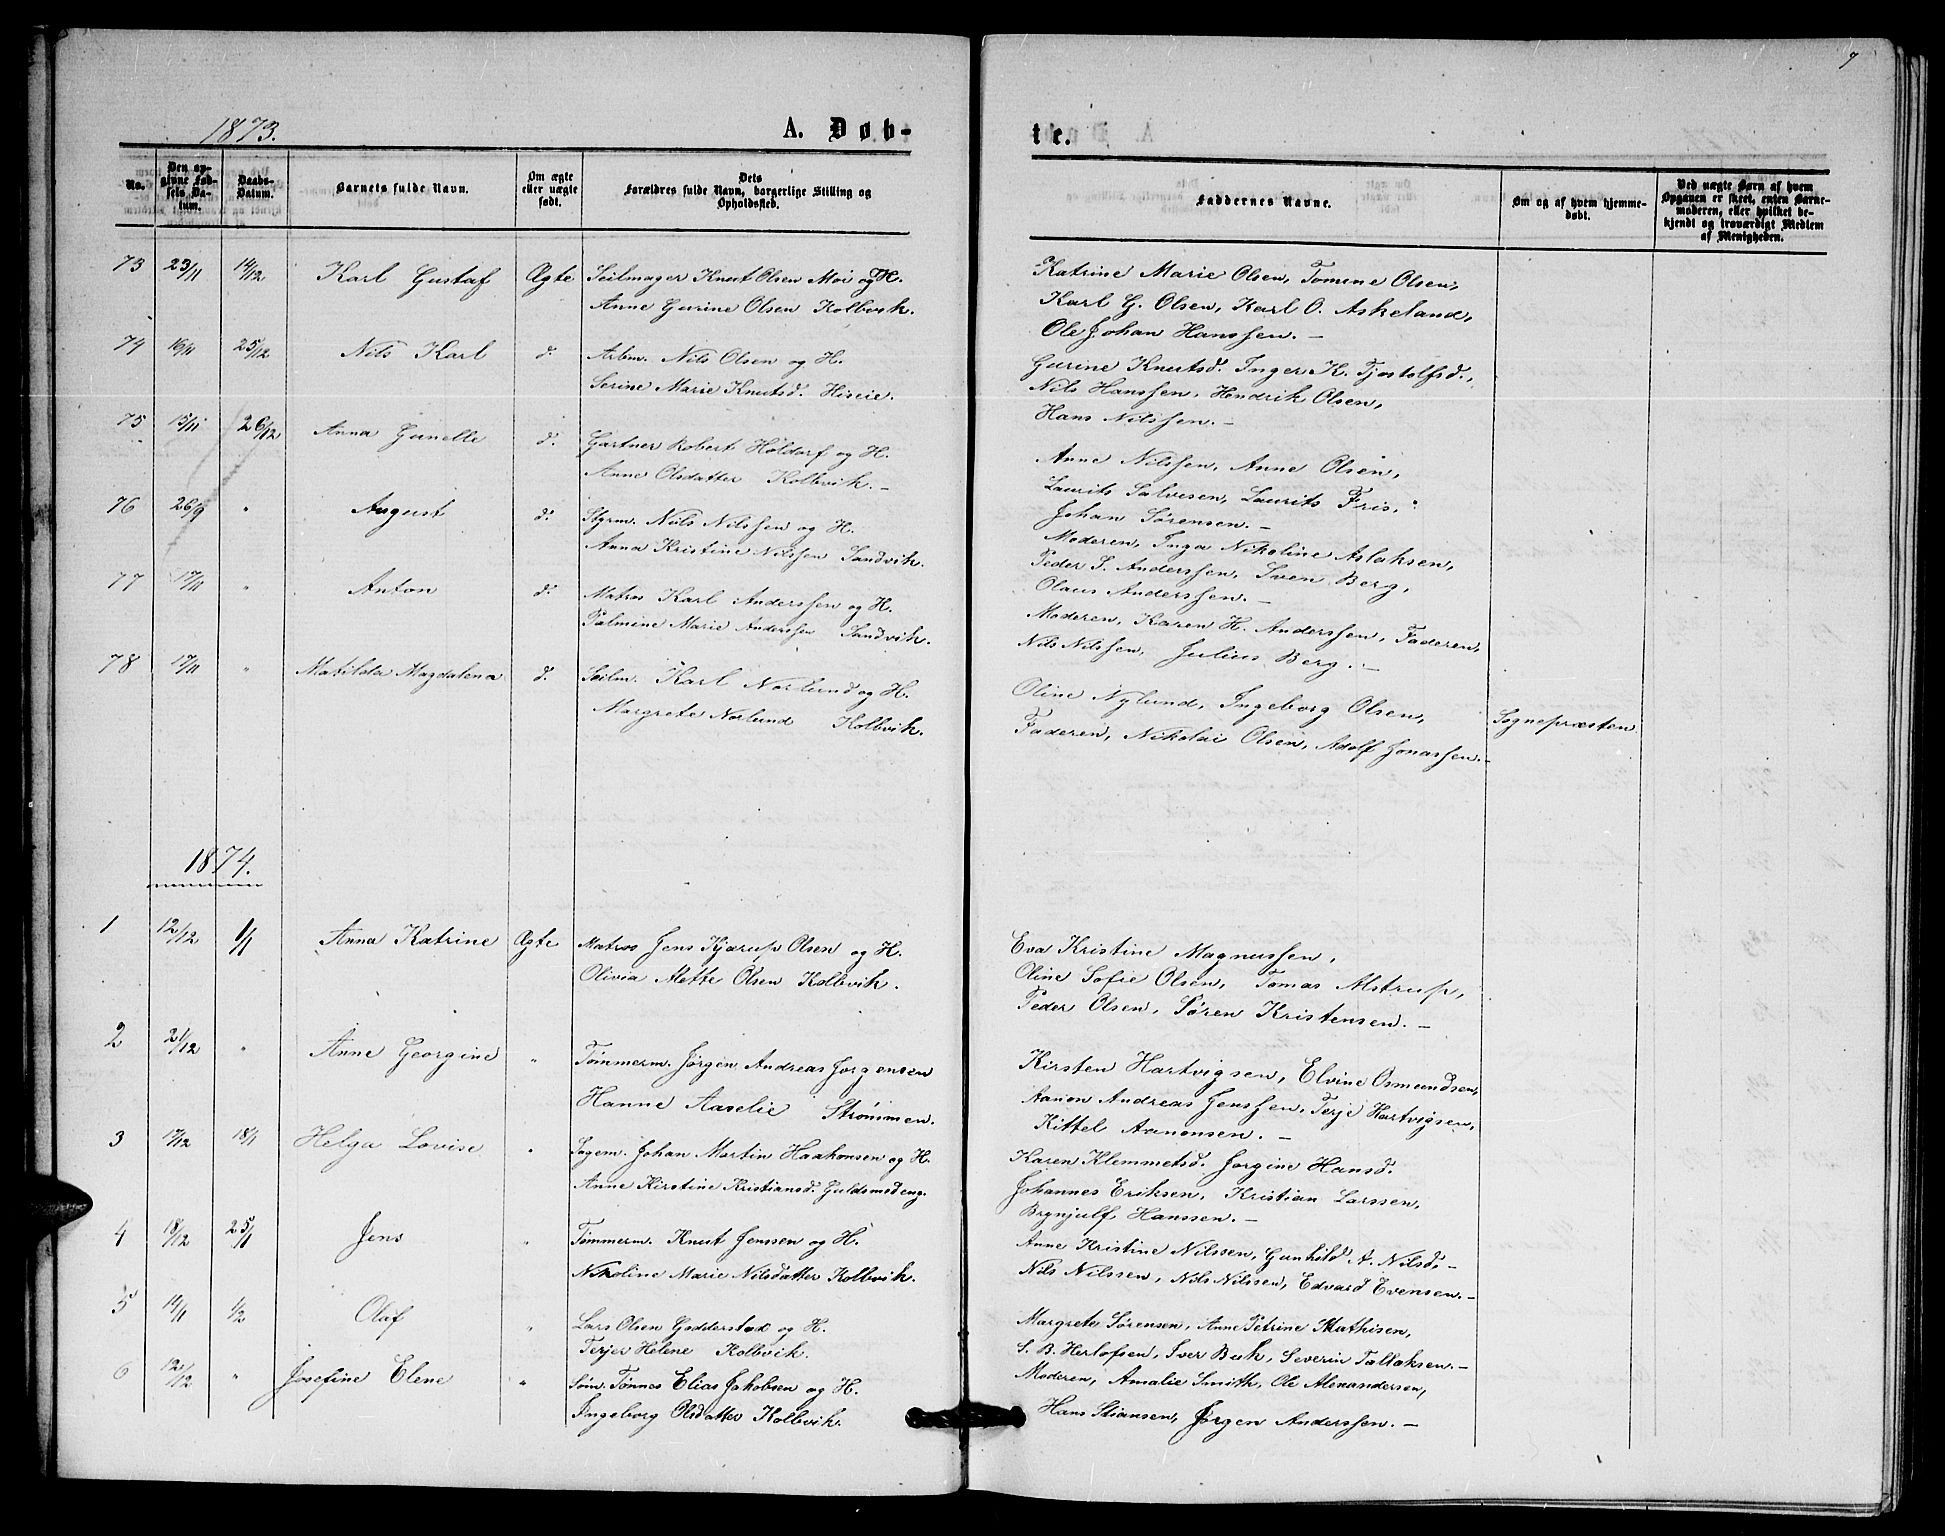 7
1873.
A. Døb-
te.
No.
Den op-
givne Fød-
sels Da-
tum.
Daabs-
Datum.
Barnets fulde Navn.
Om ægte
eller uægte
født.
Dets
Forældres fulde Navn, borgerlige Stilling og
Opholdssted.
Faddernes Navne.
Om og af hvem hjemme-
døbt.
Ved uægte Børn af hvem
Opgaven er skeet, enten Barne-
moderen, eller hvilket be-
kjendt og troværdigt Medlem
af Menigheden.
73 23/11 14/12 Karl Gustaf Ægte Seilmager Knut Olsen Moi og H.
Anne Gurine Olsen Kolbvik.
Katrine Marie Olsen, Tomine Olsen,
Karl G. Olsen, Karl O. Askeland,
Ole Johan Hanssen. –
74 16/11 25/12 Nils Karl d. Arbm. Nils Olsen og H.
Serine Marie Knutsd. Hiseie.
Gurine Knutsd. Inger K. Tjostolfsd.,
Nils Hanssen, Hendrik Olsen,
Hans Nilssen. –
75 15/11 26/12 Anna Gunelle d. Gartner Robert Holdorf og H.
Anne Olsdatter Kolbvik. –
Anne Nilssen, Anne Olsen,
Laurits Salvesen, Laurits Friis,
Johan Sørensen. –
76 26/9 " August d. Styrm. Nils Nilssen og H.
Anna Kristine Nilssen Sandvik.
Moderen, Inga Nikoline Aslaksen,
Peder S. Anderssen, Sven Berg,
Olaus Anderssen. –
77 17/11 " Anton d. Matros Karl Anderssen og H.
Palmine Marie Anderssen Sandvik.
Moderen, Karen H. Anderssen, Faderen,
Nils Nilssen, Julius Berg. –
78 17/11 " Matilda Magdalena d. Seilm. Karl Norlund og H.
Margrete Norlund Kolbvik.
Oline Nylund, Ingeborg Olsen,
Faderen, Nikolai Olsen, Adolf Jonassen. –
Sognepræsten
1874.
1 12/12 1/1 Anna Katrine Ægte Matros Jens Kjærup Olsen og H.
Olivia Mette Olsen Kolbvik.
Eva Kristine Magnussen,
Oline Sofie Olsen, Tomas Alstrup,
Peder Olsen, Søren Kristensen. –
2 21/12 " Anne Georgine " Tømmerm. Jørgen Andreas Jørgensen
Hanne Aaselie Strømmen.
Kirsten Hartvigsen, Elvine Osmundsen,
Aanon Andreas Jenssen, Terje Hartvigsen,
Kittel Aanonsen. –
3 17/12 18/1 Helga Lovise " Sagm. Johan Martin Haakonsen og H.
Anne Kirstine Kristiansd. Guldsmedeng.
Karen Klemmetsd. Jørgine Hansd.
Johannes Eriksen, Kristian Larssen,
Brynjulf Hanssen. –
4 18/12 25/1 Jens " Tømmerm. Knut Jenssen og H.
Nikoline Marie Nilsdatter Kolbvik.
Anne Kristine Nilssen, Gunhild A. Nilsd. –
Nils Nilssen, Nils Nilssen, Edvard Evensen. –
5 14/11 1/2 Olaf " Lars Olsen Gadderstad og H.
Terjer Helene Kolbvik.
Margrete Sørensen, Anne Petrine Mathisen,
S. B. Herlofsen, Iver Buk, Severin Tallaksen. –
6 12/12 " Josefine Elene " Søm. Tønnes Elias Jakobsen og H.
Ingeborg Olsdatter Kolbvik.
Moderen, Amalie Smith, Ole Alexandersen,
Hans Stiansen, Jørgen Anderssen. –